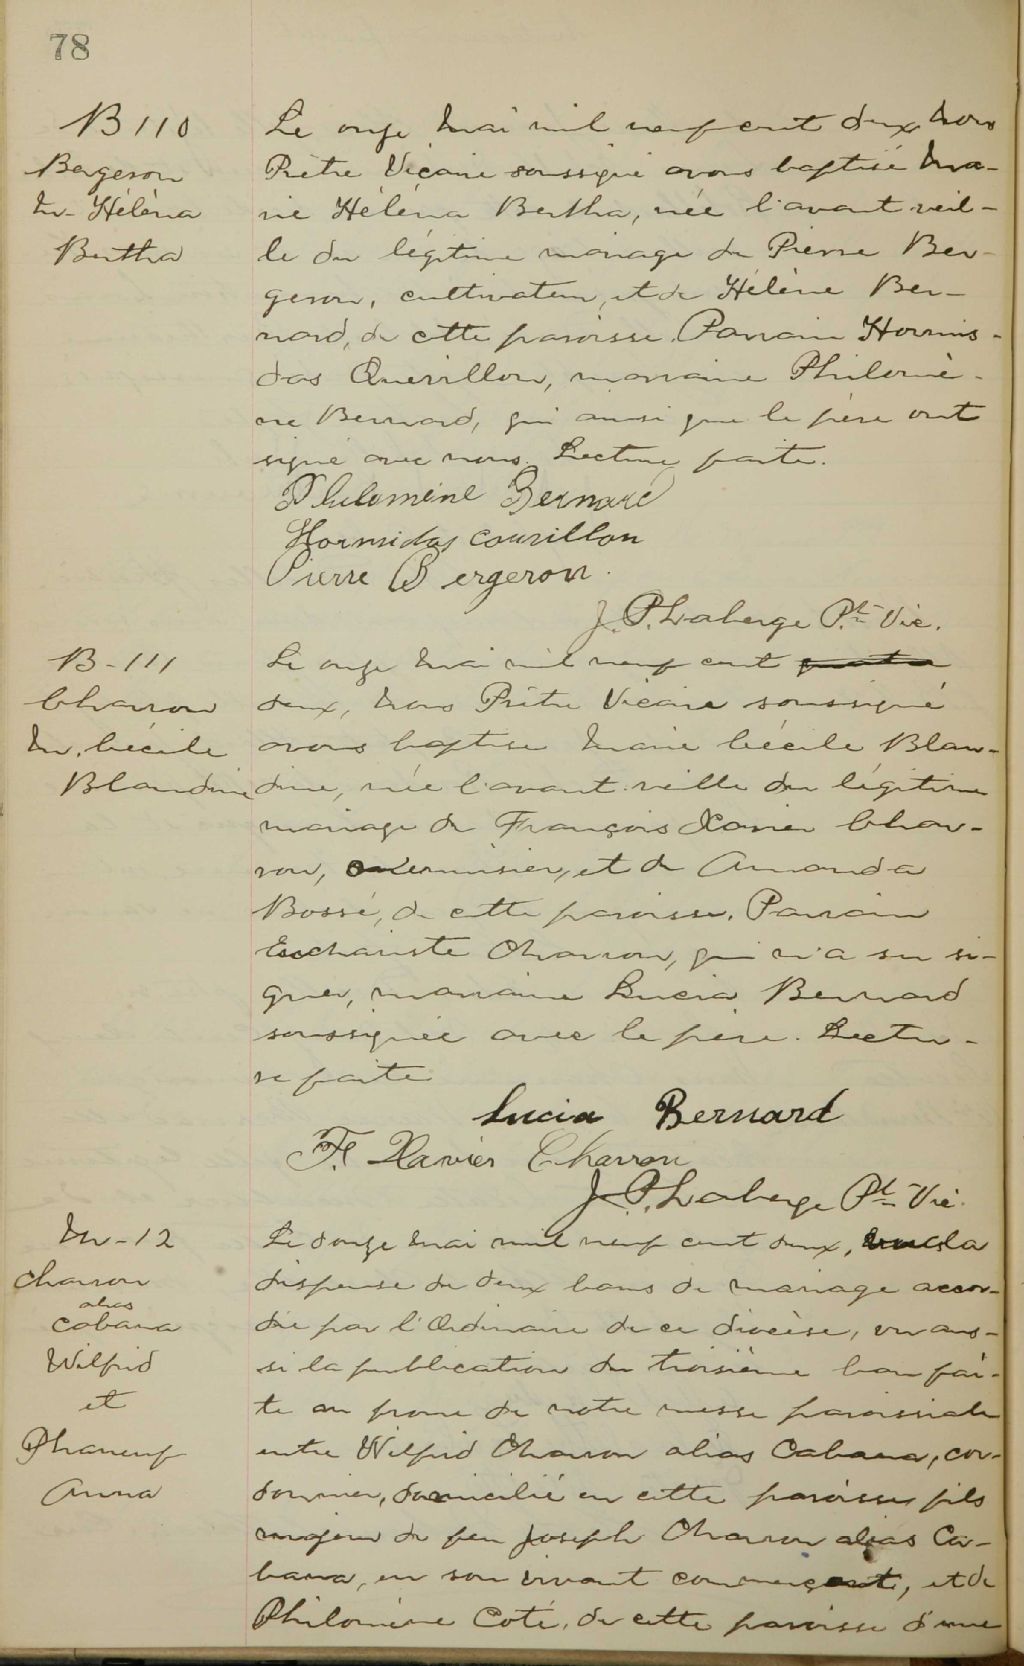 78
B 110
Bergeron
M. Héléna
Bertha
Le onze Mai mil neuf cent deux, Nous
Prêtre Vicaire soussigné avons baptisé Ma-
rie Héléna Bertha, née l'avant veil-
le du légitime mariage de Pierre Ber-
geron, cultivateur, et de Hélène Ber-
nard, de cette paroisse. Parrain Hormis-
das Quevillon, marraine Philomè-
ne Bernard, qui ainsi que le père ont
signé avec nous. Lecture faite.
Philomène Bernard
Hormidas Couvillon
Pierre Bergeron.
J. P. Laberge Ptre Vic.
B-111
Charron
M. Cécile
Blandine
Le onze Mai mil neuf cent quatre
deux, Nous Prêtre Vicaire soussigné
avons baptisé Marie Cécile Blan-
dine, née l'avant-veille du légitime
mariage de François Xavier Char-
ron, menuisier, et de Amanda
Bossé, de cette paroisse. Parrain
Euchariste Charron, qui n'a su si-
gner, marraine Lucia Bernard
soussignée avec le père. Lectu-
re faite
Lucia Bernard
F. Xavier Charron
J. P. Laberge Ptre Vic.
M-12
Charron
alias
Cabana
Wilfrid
et
Phaneuf
Anna
Le douze Mai mil neuf cent deux, vu la
dispense de deux bans de mariage accor-
dée par l'Ordinaire de ce diocèse, vu aus-
si la publication du troisième ban fai-
te au prone de notre messe paroissiale
entre Wilfrid Charron alias Cabana, cor-
donnier, domicilié en cette paroisse, fils
majeur de feu Joseph Charron alias Ca-
bana, en son vivant commerçant, et de
Philomène Coté, de cette paroisse d'une